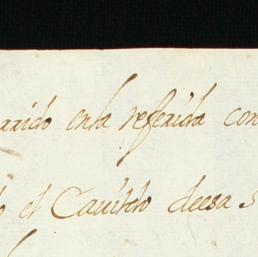 rrido enla referida con
o el Cauildo deesa S